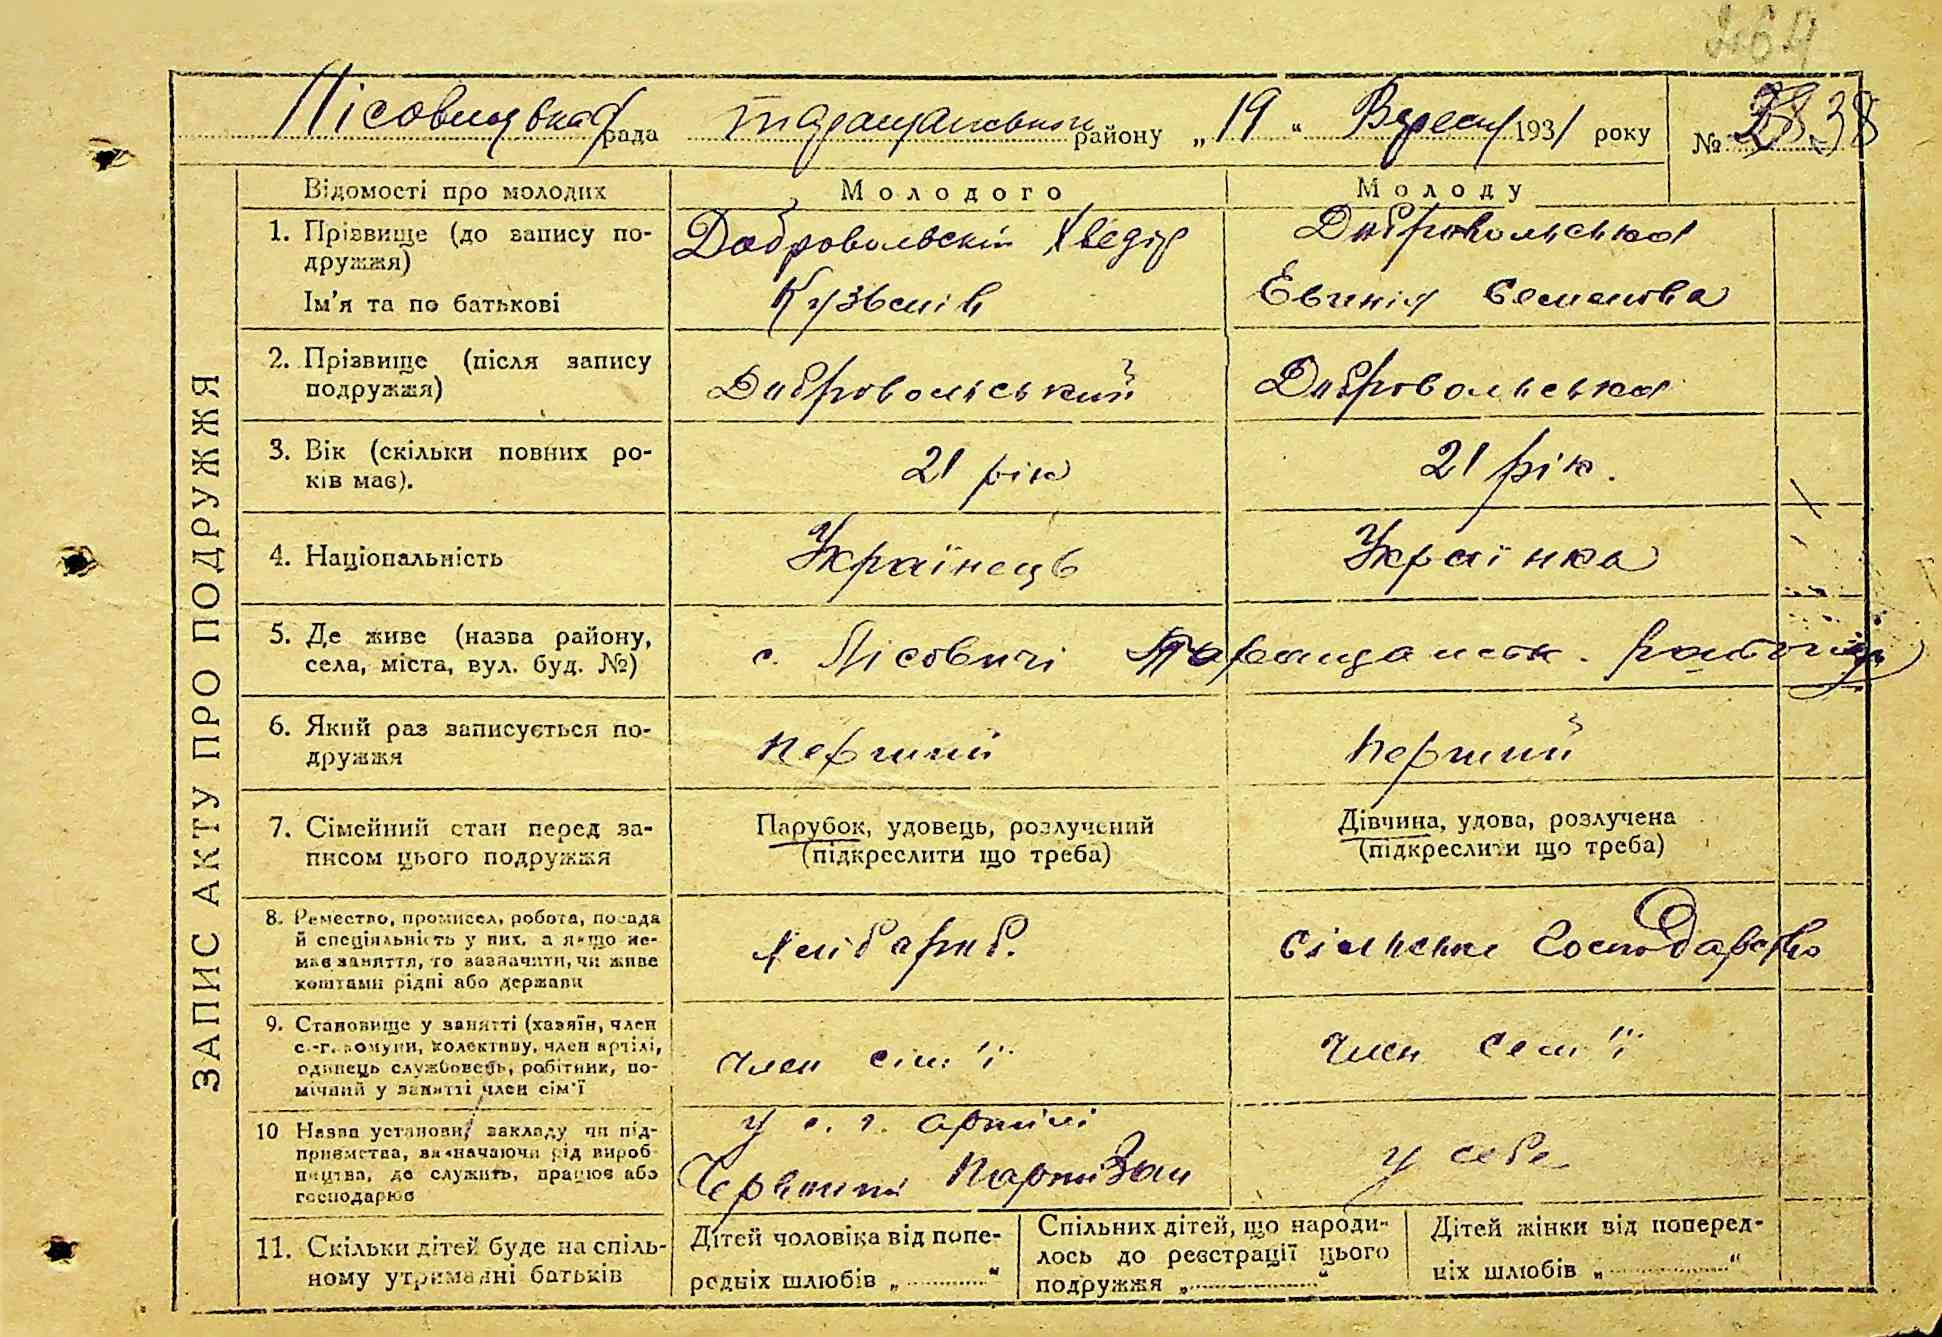 264
Лісовицька рада Таращанського району „19“ Вересн 1931 року № 38 38
ЗАПИС АКТУ ПРО ПОДРУЖЖЯ
Відомості про молодих Молодого Молоду
1. Прізвище (до запису по- Добровольскій Хведір Добровольська
дружжя)
Ім'я та по батькові Кузьмів Евгинія Семенова
2. Прізвище (після запису
подружжя) Добровольський Добровольська
3. Вік (скільки повних ро- 21 рік 21 рік.
ків має).
4. Національність Українець Українка
5. Де живе (назва району,
села, міста, вул. буд. №) с. Лісовичі Таращанськ. району
6. Який раз записується по- перший перший
дружжя
7. Сімейний стан перед за- Парубок, удовець, розлучений Дівчина, удова, розлучена
писом цього подружжя (підкреслити що треба) (підкреслити що треба)
8. Ремество, промисел, робота, посада
й спеціяльність у них, а якщо не-
має заняття, то зазначити, чи живе Хлібороб. сільське Господарство
коштами рідні або держави
9. Становище у занятті (хазяїн, член
с.-г. комуни, колективу, член артілі,
одинець службовець, робітник, по- член сім'ї член сем'ї
мічний у занятті член сім'ї
10 Назва установи, закладу чи під- у с. г. артілі
приємства, вазначаючи рід вироб-
ництва, де служить, працює або Червоний Партизан у себе
господарює
11. Скільки дітей буде на спіль-
ному утриманні батьків
Дітей чоловіка від попе-
редніх шлюбів „ “
Спільних дітей, що народи-
лось до реєстрації цього
подружжя „ “
Дітей жінки від поперед-
ніх шлюбів „ “